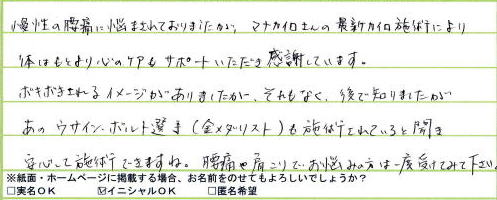 慢性の腰痛に悩まされておりましたが、マナカイロさんの最新カイロ施術により
体はもとより心のケアもサポートいただき感謝しています。
ボキボキされるイメージがありましたが、それもなく、後で知りましたが
あのウサイン・ボルト選手(金メダリスト)も施術されていると聞き
安心して施術できますね。腰痛や肩こりでお悩みの方は一度受けてみて下さい。
※紙面・ホームページに掲載する場合、お名前をのせてもよろしいでしょうか?
□実名OK ☑イニシャルOK □匿名希望